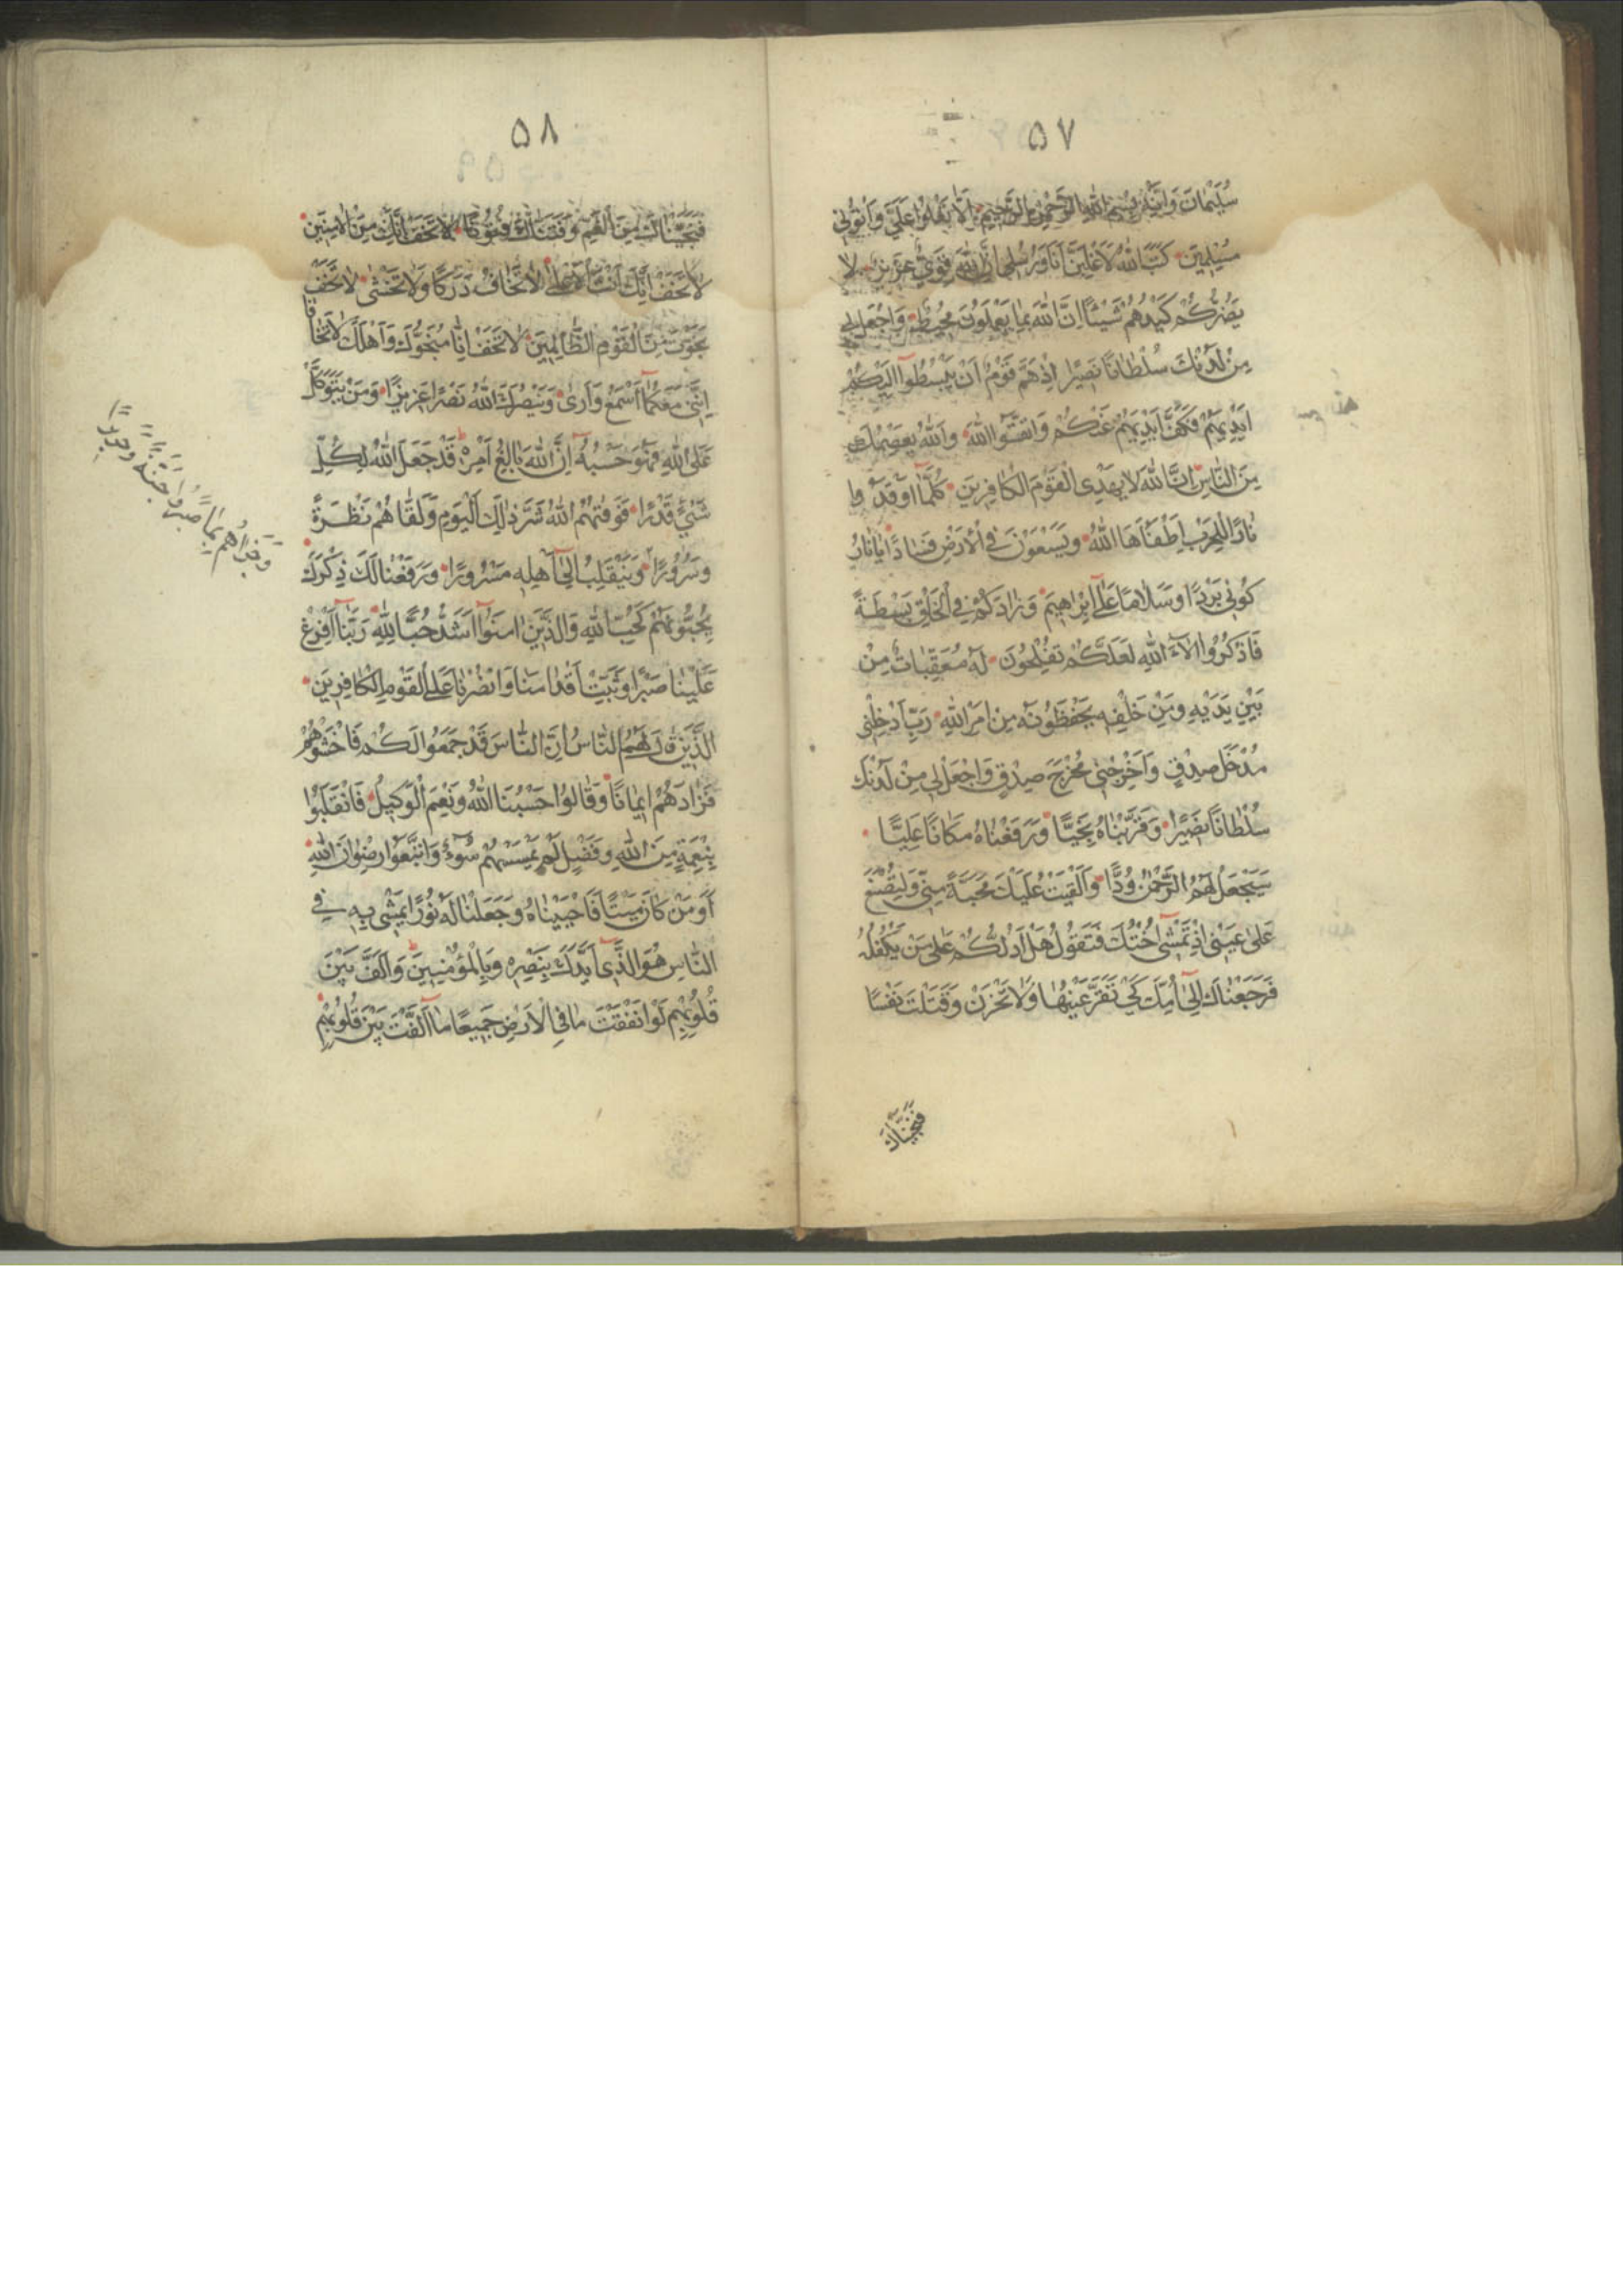 ۵۷
سُلَيْمَانَ وَاِنَّهُ بِسْمِ اللهِ الرَّحْمٰنِ الرَّحِيمِ اَلَّا تَعْلُوا عَلَيَّ وَاْتُونِي
مُسْلِمِينَ كَتَبَ اللهُ لَاَغْلِبَنَّ اَنَا وَرُسُلِي اِنَّ اللهَ قَوِيٌّ عَزِيزٌ لا
يَضُرُّكُمْ كَيْدُهُمْ شَيْئًا اِنَّ اللهَ بِمَا يَعْمَلُونَ مُحِيطٌ وَاجْعَلْ لِي
مِنْ لَدُنْكَ سُلْطَانًا نَصِيرًا اِذْ هَمَّ قَوْمٌ اَنْ يَبْسُطُوا اِلَيْكُمْ
اَيْدِيَهُمْ فَكَفَّ اَيْدِيَهُمْ عَنْكُمْ وَاتَّقُوا اللهَ وَاللهُ يَعْصِمُكَ
مِنَ النَّاسِ اِنَّ اللهَ لَا يَهْدِي الْقَوْمَ الْكَافِرِينَ كُلَّمَا اَوْقَدُوا
نَارًا لِلْحَرْبِ اَطْفَأَهَا اللهُ وَيَسْعَوْنَ فِي الْاَرْضِ فَسَادًا يَا نَارُ
كُونِي بَرْدًا وَسَلَامًا عَلَى اِبْرَاهِيمَ وَزَادَكُمْ فِي الْخَلْقِ بَسْطَةً
فَاذْكُرُوا اٰلَاءَ اللهِ لَعَلَّكُمْ تُفْلِحُونَ لَهُ مُعَقِّبَاتٌ مِنْ
بَيْنِ يَدَيْهِ وَمِنْ خَلْفِهِ يَحْفَظُونَهُ مِنْ اَمْرِ اللهِ رَبِّ اَدْخِلْنِي
مُدْخَلَ صِدْقٍ وَاَخْرِجْنِي مُخْرَجَ صِدْقٍ وَاجْعَلْ لِي مِنْ لَدُنْكَ
سُلْطَانًا نَصِيرًا وَقَرَّبْنَاهُ نَجِيًّا وَرَفَعْنَاهُ مَكَانًا عَلِيًّا
سَيَجْعَلُ لَهُمُ الرَّحْمٰنُ وُدًّا وَاَلْقَيْتُ عَلَيْكَ مَحَبَّةً مِنِّي وَلِتُصْنَعَ
عَلَى عَيْنِي اِذْ تَمْشِي اُخْتُكَ فَتَقُولُ هَلْ اَدُلُّكُمْ عَلَى مَنْ يَكْفُلُهُ
فَرَجَعْنَاكَ اِلَى اُمِّكَ كَيْ تَقَرَّ عَيْنُهَا وَلَا تَحْزَنَ وَقَتَلْتَ نَفْسًا
فَنَجَّيْنَاكَ
۵۸
فَنَجَّيْنَاكَ مِنَ الْغَمِّ وَفَتَنَّاكَ فُتُونًا لَا تَخَفْ اِنَّكَ مِنَ الْاٰمِنِينَ
لَا تَخَفْ اِنَّكَ اَنْتَ الْاَعْلَى لَا تَخَافُ دَرَكًا وَلَا تَخْشَى لَا تَخَفْ
نَجَوْتَ مِنَ الْقَوْمِ الظَّالِمِينَ لَا تَخَفْ اِنَّا مُنَجُّوكَ وَاَهْلَكَ لَا تَخَافَا
اِنَّنِي مَعَكُمَا اَسْمَعُ وَاَرَى وَيَنْصُرَكَ اللهُ نَصْرًا عَزِيزًا وَمَنْ يَتَوَكَّلْ
عَلَى اللهِ فَهُوَ حَسْبُهُ اِنَّ اللهَ بَالِغُ اَمْرِهِ قَدْ جَعَلَ اللهُ لِكُلِّ
شَيْءٍ قَدْرًا فَوَقٰهُمُ اللهُ شَرَّ ذٰلِكَ الْيَوْمِ وَلَقَّاهُمْ نَضْرَةً
وَسُرُورًا وَيَنْقَلِبُ اِلَى اَهْلِهِ مَسْرُورًا وَرَفَعْنَا لَكَ ذِكْرَكَ
يُحِبُّونَهُمْ كَحُبِّ اللهِ وَالَّذِينَ اٰمَنُوا اَشَدُّ حُبًّا لِلّٰهِ رَبَّنَا اَفْرِغْ
عَلَيْنَا صَبْرًا وَثَبِّتْ اَقْدَامَنَا وَانْصُرْنَا عَلَى الْقَوْمِ الْكَافِرِينَ
الَّذِينَ قَالَ لَهُمُ النَّاسُ اِنَّ النَّاسَ قَدْ جَمَعُوا لَكُمْ فَاخْشَوْهُمْ
فَزَادَهُمْ اِيمَانًا وَقَالُوا حَسْبُنَا اللهُ وَنِعْمَ الْوَكِيلُ فَانْقَلَبُوا
بِنِعْمَةٍ مِنَ اللهِ وَفَضْلٍ لَمْ يَمْسَسْهُمْ سُوءٌ وَاتَّبَعُوا رِضْوَانَ اللهِ
اَوَمَنْ كَانَ مَيْتًا فَاَحْيَيْنَاهُ وَجَعَلْنَا لَهُ نُورًا يَمْشِي بِهِ فِي
النَّاسِ هُوَ الَّذِي اَيَّدَكَ بِنَصْرِهِ وَبِالْمُؤْمِنِينَ وَاَلَّفَ بَيْنَ
قُلُوبِهِمْ لَوْ اَنْفَقْتَ مَا فِي الْاَرْضِ جَمِيعًا مَا اَلَّفْتَ بَيْنَ قُلُوبِهِمْ
بِمَا صَبَرُوا جَنَّةً وَحَرِيرًا